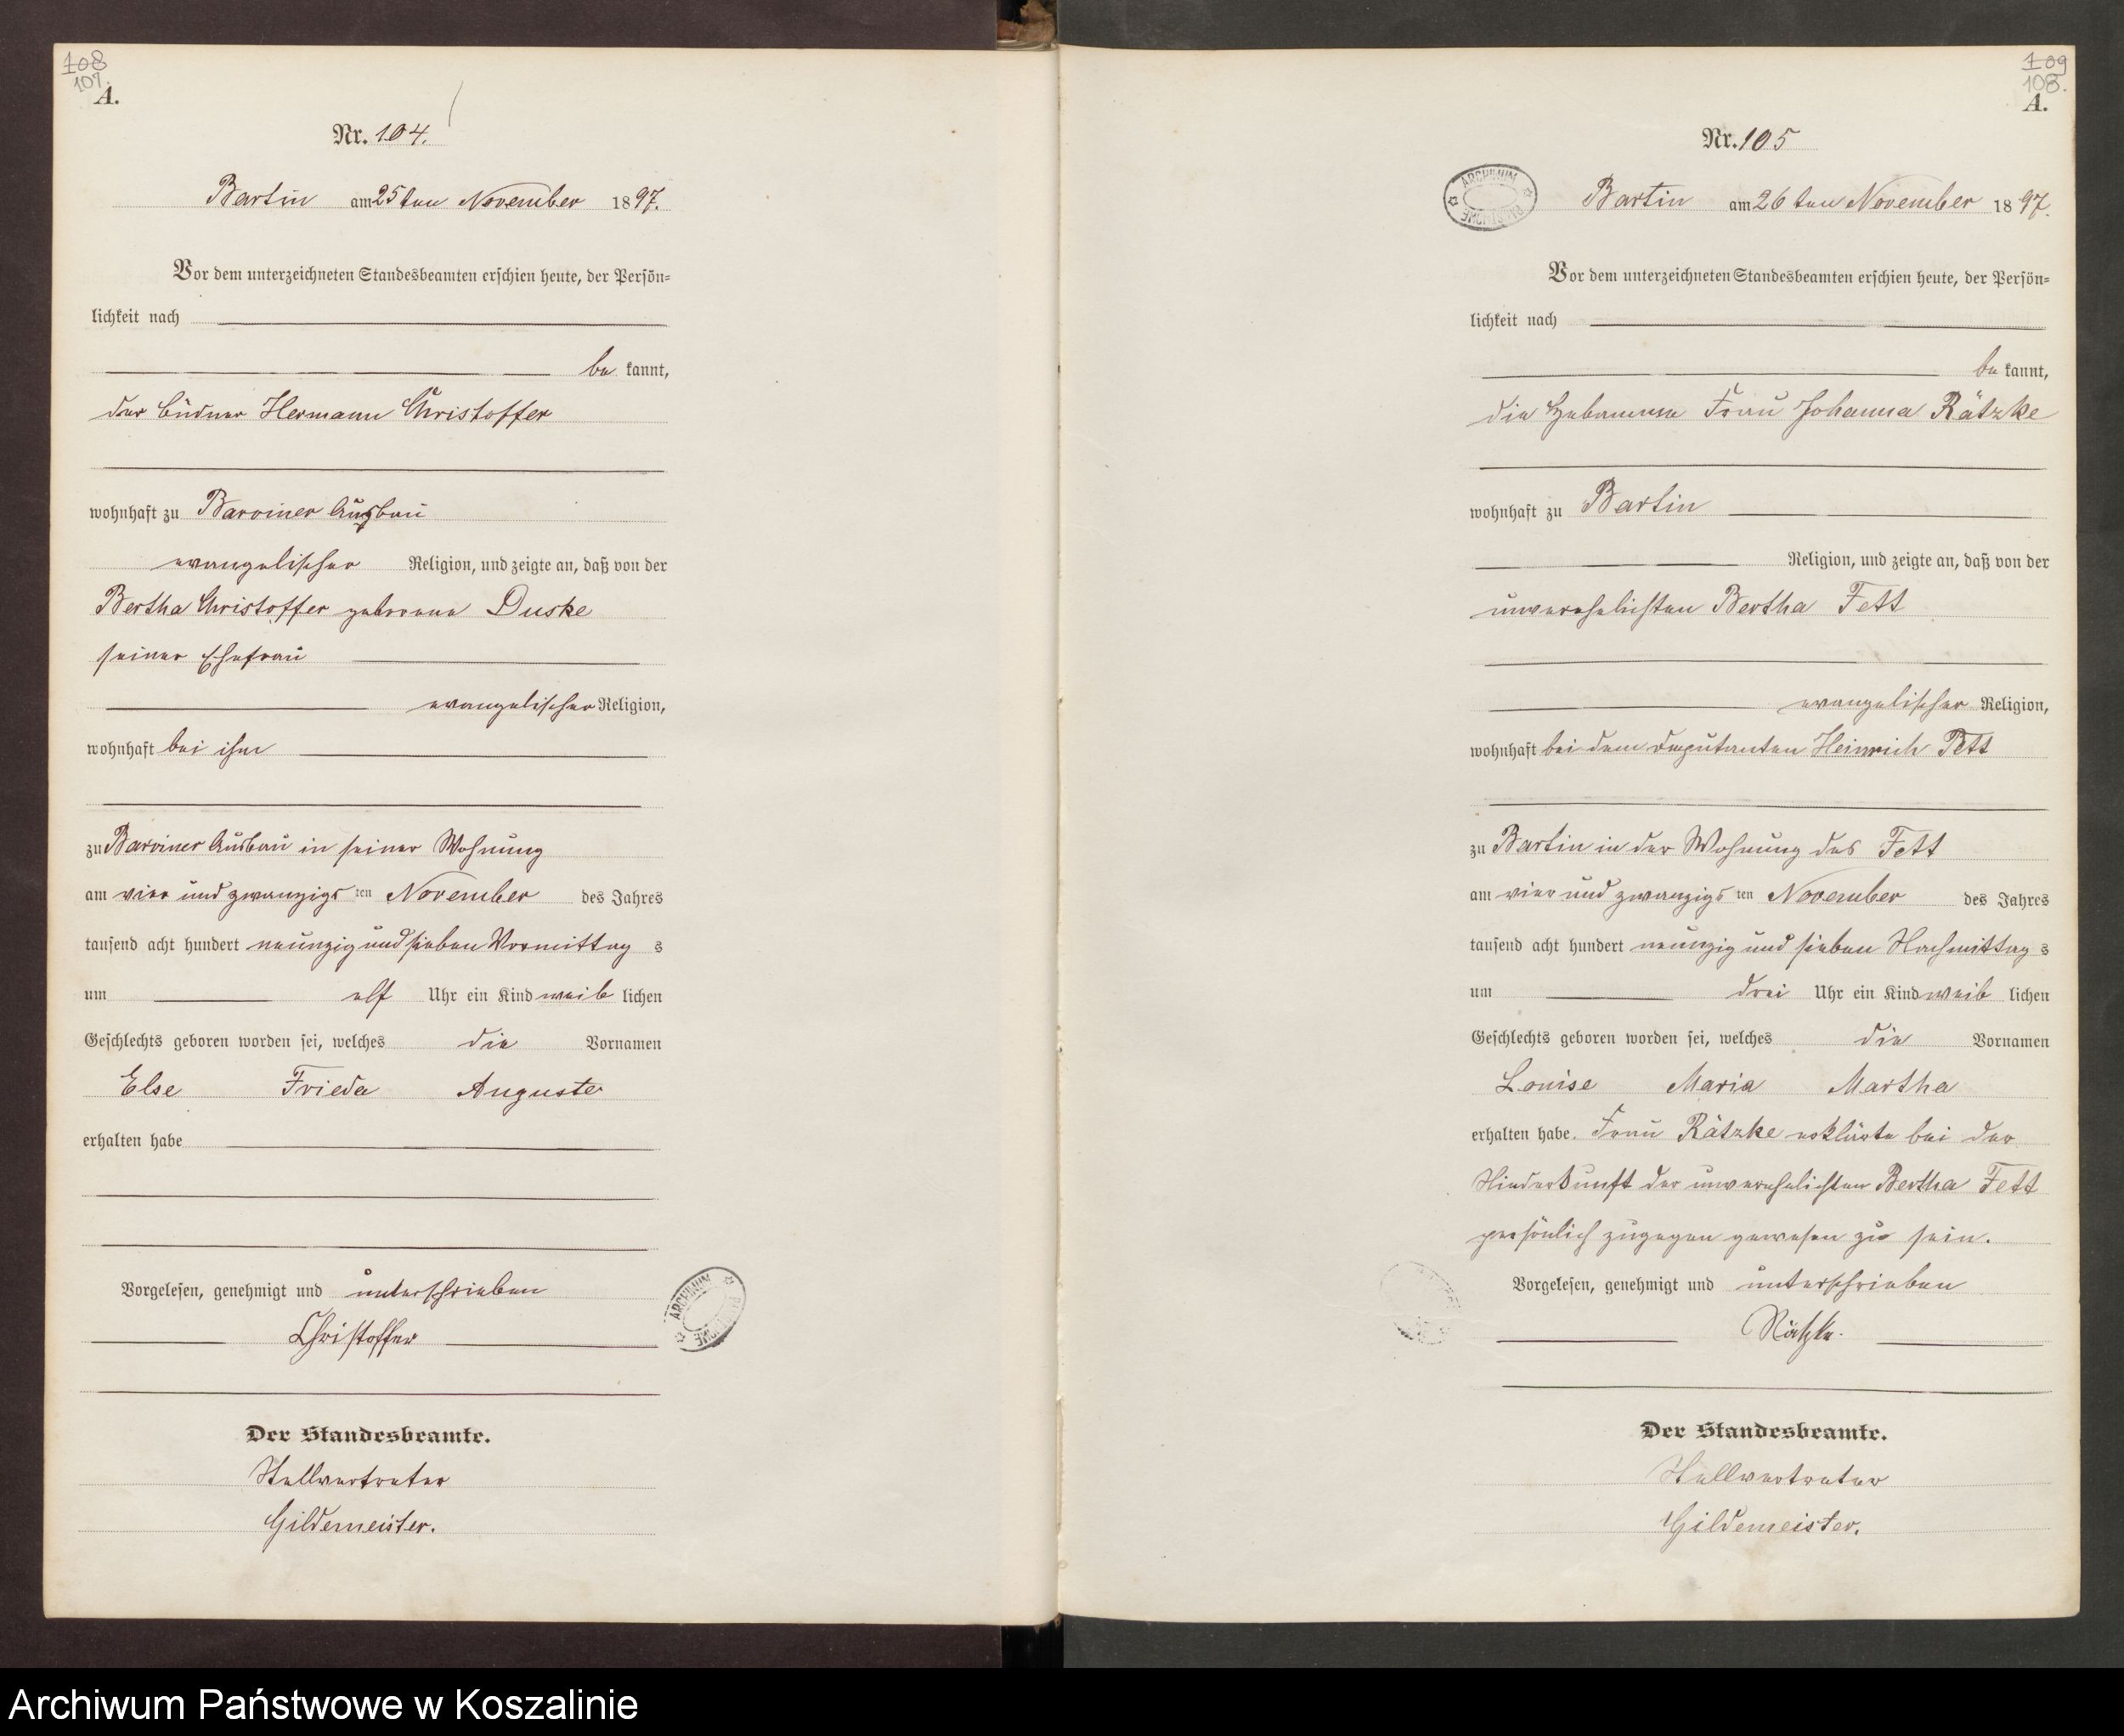 108
107.
A.
Nr. 104.
Bartin am 25ten November 1897.
Vor dem unterzeichneten Standesbeamten erschien heute, der Persön=
lichkeit nach
be kannt,
der Büdner Hermann Christoffer
wohnhaft zu Barviner Ausbau
evangelischer Religion, und zeigte an, daß von der
Bertha Christoffer geborene Duske
seiner Ehefrau
evangelischer Religion,
wohnhaft bei ihm
zu Barviner Ausbau in seiner Wohnung
am vier und zwanzigs ten November des Jahres
tausend acht hundert neunzig und sieben Vormittag s
um elf Uhr ein Kind weib lichen
Geschlechts geboren worden sei, welches die Vornamen
Else Frieda Auguste
erhalten habe
Vorgelesen, genehmigt und unterschrieben
Christoffer
Der Standesbeamte.
Stellvertreter
Gildemeister.
ARCHIWUM
109
108.
A.
Nr. 105
ARCHIWUM
Bartin am 26ten November 1897.
Vor dem unterzeichneten Standesbeamten erschien heute, der Persön=
lichkeit nach
be kannt,
die Hebamme Frau Johanna Rätzke
wohnhaft zu Bartin
Religion, und zeigte an, daß von der
unverehelichten Bertha Fett
evangelischer Religion,
wohnhaft bei dem Deputanten Heinrich Fett
zu Bartin in der Wohnung des Fett
am vier und zwanzigs ten November des Jahres
tausend acht hundert neunzig und sieben Nachmittag s
um drei Uhr ein Kind weib lichen
Geschlechts geboren worden sei, welches die Vornamen
Louise Maria Martha
erhalten habe. Frau Rätzke erklärte bei der
Niederkunft der unverehelichten Bertha Fett
persönlich zugegen gewesen zu sein.
Vorgelesen, genehmigt und unterschrieben
Rätzke.
Der Standesbeamte.
Stellvertreter
Gildemeister.
Archiwum Państwowe w Koszalinie